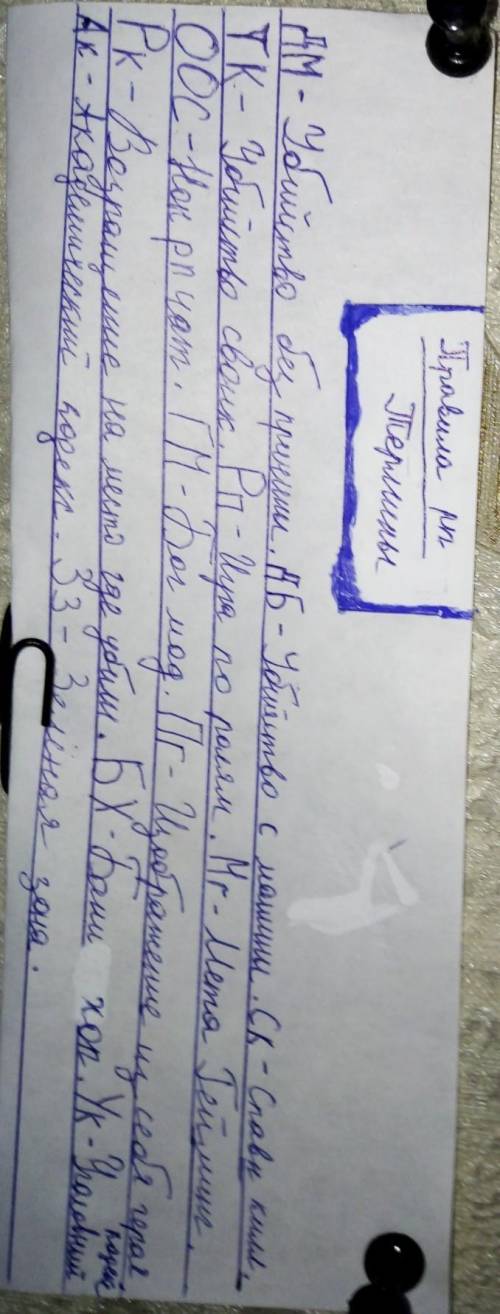 Правила рп
Термины
ДМ - Убийство без причины. ДБ - Убийство с машины. СК - Спавн килл.
ТК - Убийство своих. Рп - Игра по ролям. Мг - Мета Гейминг.
ООС - Нон рп чат. ГМ - Бог мод. Пг - Изображение из себя героя
Рк - Возращение на место где убили. БХ - Банни хоп. Ук - Уголовный кодекс
Ак - Академический кодекс. ЗЗ - Зелёная зона.